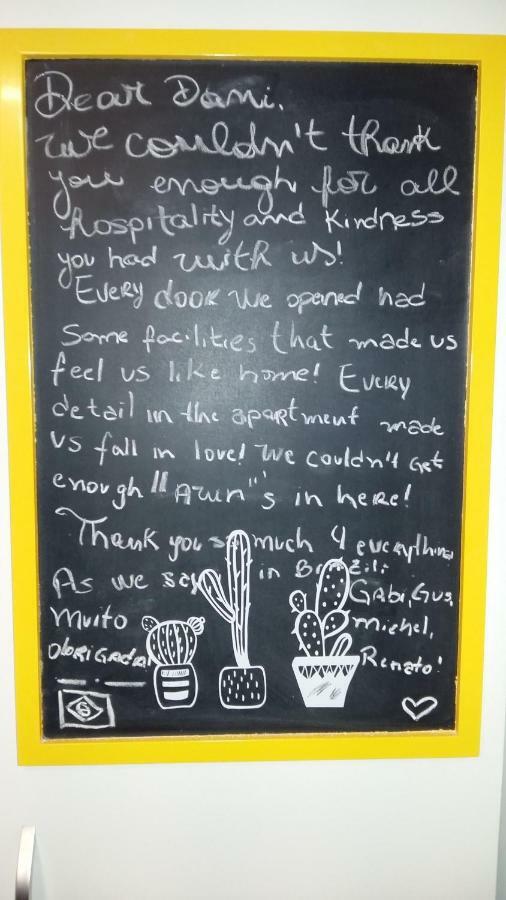 Dear Dani,
we couldn't thank
you enough for all
hospitality and kindness
you had with us!
Every door we opened had
Some facilities that made us
feel us like home! Every
detail in the apartment made
us fall in love! We couldn't get
enough "Awn"s in here!
Thank you so much 4 everything
As we say in Brazil:
Muito
obrigada!
Gabi, Gus,
Michel,
Renato!